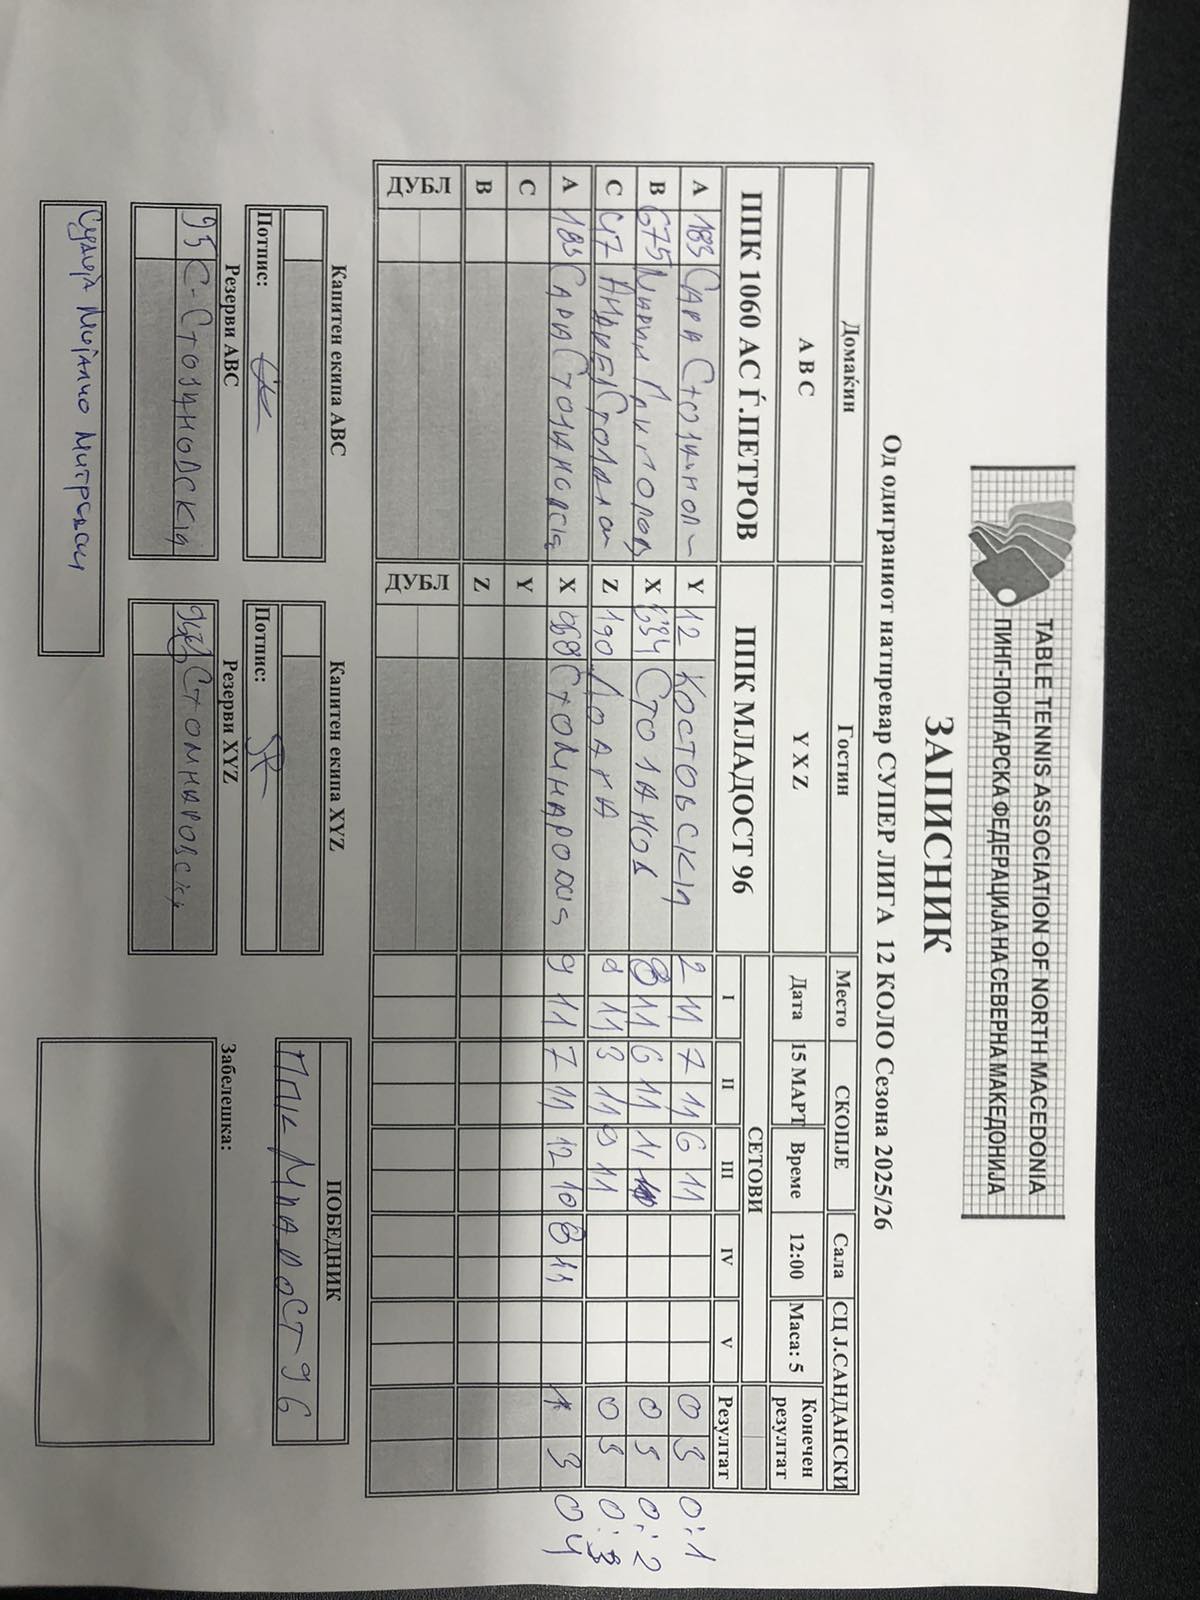 TABLE TENNIS ASSOCIATION OF NORTH MACEDONIA
ПИНГ-ПОНГАРСКА ФЕДЕРАЦИЈА НА СЕВЕРНА МАКЕДОНИЈА
ЗАПИСНИК
Од одиграниот натпревар СУПЕР ЛИГА 12 КОЛО Сезона 2025/26
Домаќин Гостин Место СКОПЈЕ Сала СЦ Ј.САНДАНСКИ
A B C Y X Z Дата 15 МАРТ Време 12:00 Маса: 5 Конечен резултат
ППК 1060 АС Ѓ.ПЕТРОВ ППК МЛАДОСТ 96 СЕТОВИ
I II III IV V Резултат
A 183 САРА Y 12 КОСТОВСКИ 2 11 7 11 6 11 0 3 0:1
B 675 X 634 СТОЈАНОВ 8 11 6 11 11 0 3 0:2
C 47 Z 190 3 11 9 11 0 3 0:3
A 183 САРА СТОЈАНОВСКИ X 968 9 11 7 11 12 10 8 11 1 3 0 4
C Y
B Z
ДУБЛ ДУБЛ
Капитен екипа ABC Капитен екипа XYZ ПОБЕДНИК
Потпис: Потпис: ППК МЛАДОСТ 96
Резерви ABC Резерви XYZ Забелешка:
95 С-СТОЈАНОВСКИ СТОМНАРОВСКИ
Судија Мијалчо Митревски